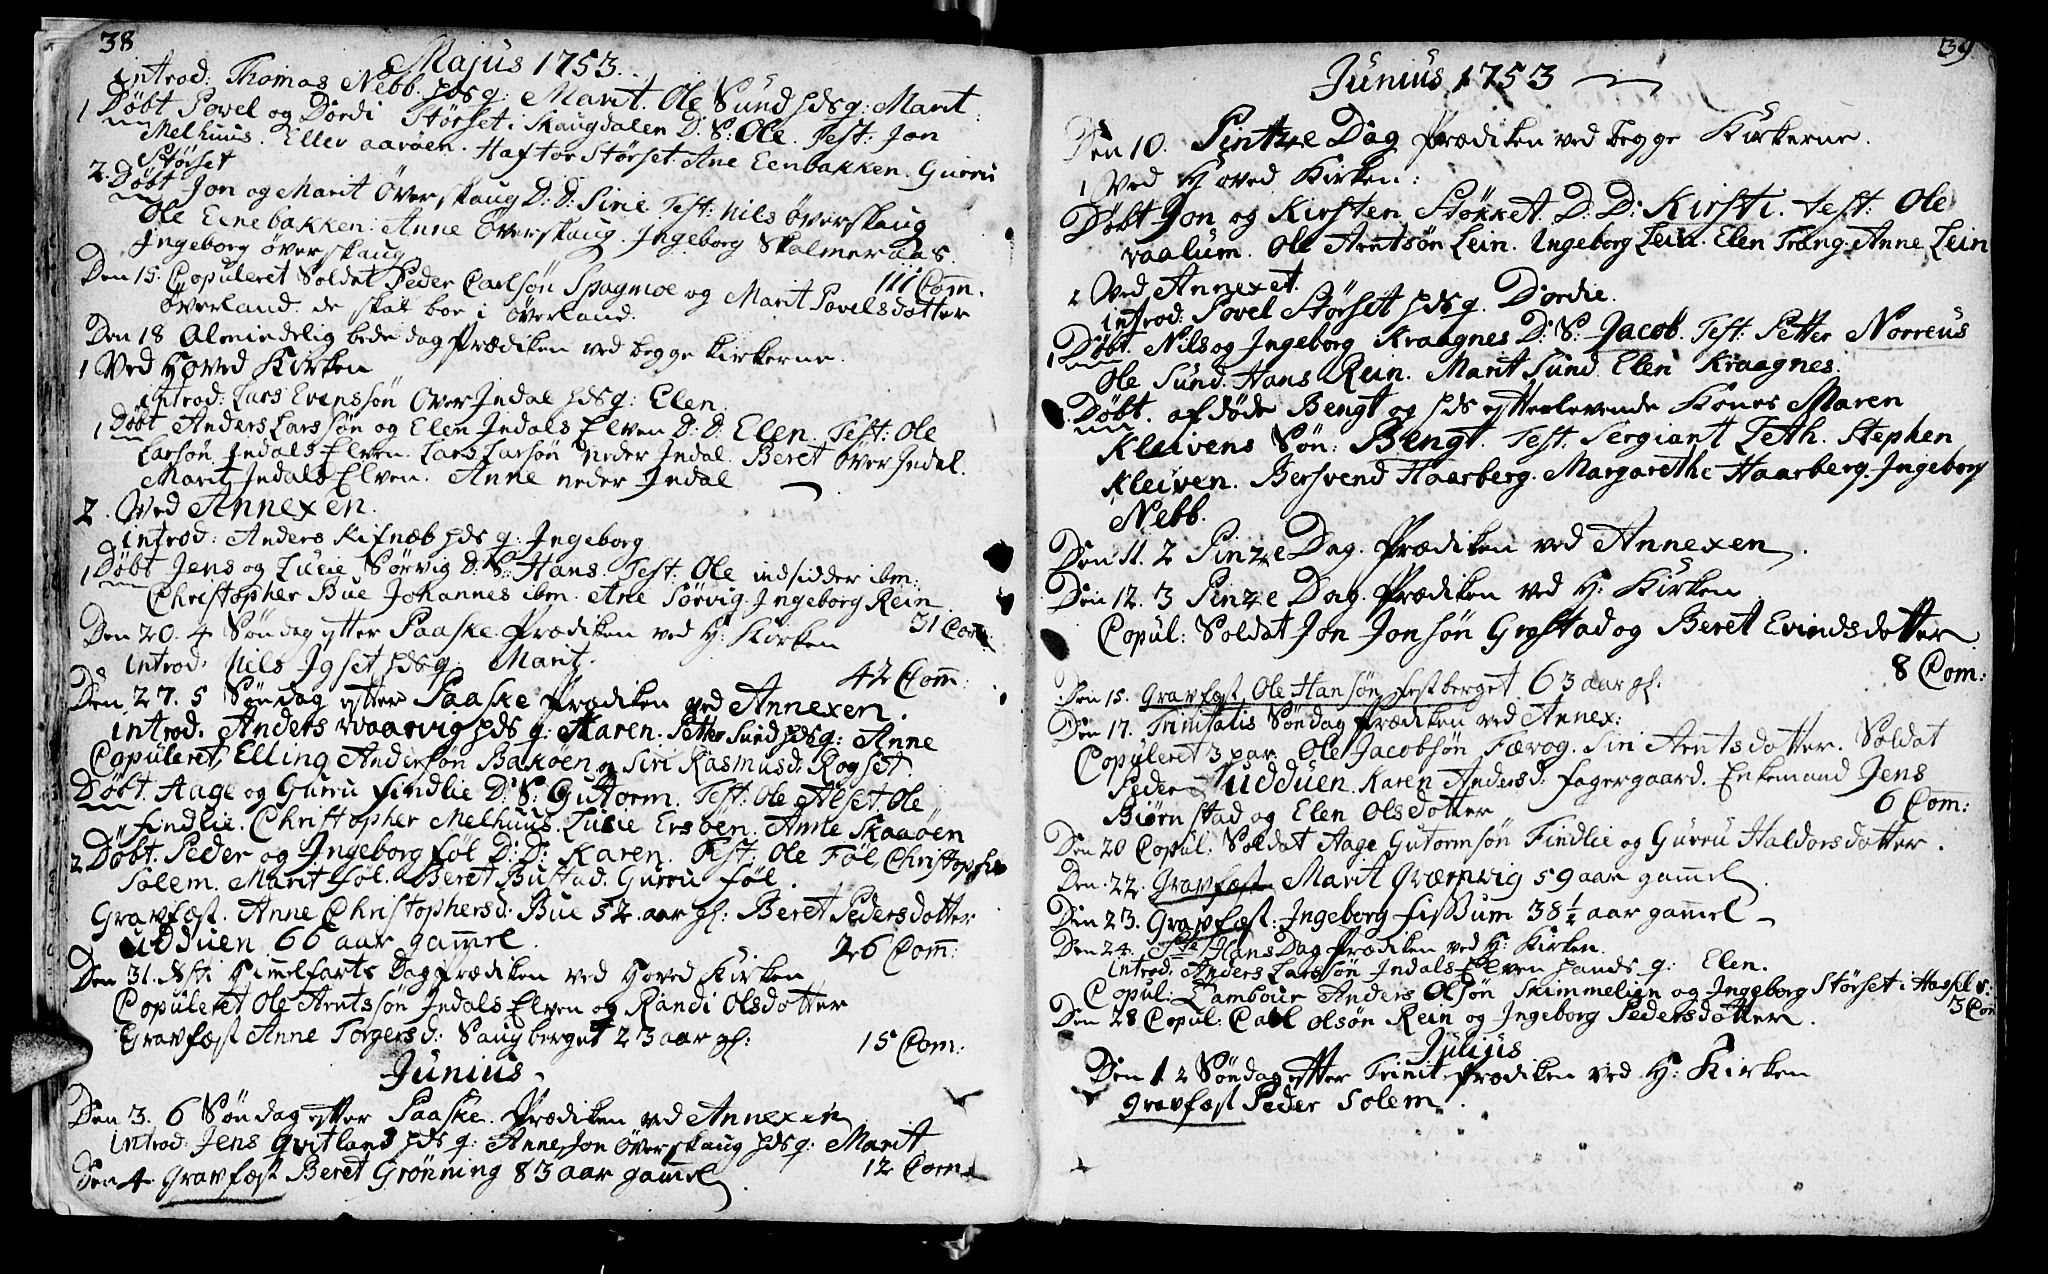 38
Majus 1753.
introd: Thomas Nebb. hds q: Marit. Ole Sund hds q: Marit
1 Døbt Povel og Dordi Størset i Skaugdalen D: S: Ole. Test: Jon
Melhuus. Ellev aarøen. Haftor Størset. Ane Eenbakken. Gurru
Størset
2. Døbt Jon og Marit Överskaug D: D: Sirie Test: Nils överskaug
Ole Eenebakken. Anne Överskaug. Ingeborg Skalmeraas.
Ingeborg överskaug
111 Com.
Den 15. Copuleret Soldat Peder Carlsøn Spagmoe og Marit Povelsdotter
överland. de skal boe i överland.
Den 18 Almindelig bededag Prædiken ved begge kirkerne.
1 Ved Hoved Kirken
introd: Lars Evensøn Over Indal hds q: Elen
1 Døbt Anders Larssøn og Elen Indals Elven D: D: Elen. Test: Ole
Larsøn Indals Elven. Lars Larsøn neder Indal. Beret över Indal.
Marit Indals Elven. Anne neder Indal
2. Ved Annexen.
introd: Anders Kifnæb hds q: Ingeborg
1 Døbt Jens og Lucie Sørvig D: S: Hans. Test: Ole indsidder ibm:
Christopher Bue Johannes ibm. Ane Sørvig. Ingeborg Rein.
31 Com
Den 20. 4 Søndag efter Paaske Prædiken ved H: Kirken
introd: Nils Igset hds q: Marit.
42 Com:
Den 27. 5 Søndag efter Paaske Prædiken ved Annexen.
introd. Anders Vaarvig hds q: Karen. Petter Sund hds q: Anne
Copuleret Elling Andersøn Bakøen og Siri Rasmusd: Rogset.
Døbt. Aage og Guru Findlie D: S: Gutorm. Test: Ole Alset. Ole
Findlie. Christopher Melhuus. Lucie Ersøen. Anne Skaaøen
2 Døbt. Peder og Ingeborg Føl D: D: Karen. Test: Ole Føl Christopher
Solem. Marit Føl. Beret Bustad. Gurru Føl.
Gravfæst. Anne Christophersd: Bue 52. aar gl: Beret Pedersdotter
udduen 66 aar gamel.
26 Com:
Den 31. Kristi Himmelfarts Dag Prædiken ved Hoved Kirken
Copuleret Ole Arntssøn Indals Elven og Randi Olsdotter
Gravfæst Anne Torgersd: Saugberget 23 aar gl:
15 Com:
Junius.
Den 3. 6 Søndag efter Paaske. Prædiken ved Annexen
introd: Jens Qvitland hds q: Anne Jon överskaug hds q: Marit
12 Com.
Den 4. Gravfæst Beret Grønning 83 aar gamel.
39
Junius 1753
Den 10. Pintze Dag Prædiken ved begge Kirkerne.
1 Ved Hoved Kirken:
Døbt Jon og Kirsten Støkket. D: D: Kirsti. Test: Ole
vaalum. Ole Arntsøn Lein. Ingeborg Lein. Elen Trang. Anne Lein
2 Ved Annexet.
introd: Povel Størset hds q. Dordie.
1 Døbt. Nils og Ingeborg Kraagnes D: S: Jacob. Test: Petter Norreus
Ole Sund. Hans Rein. Marit Sund. Elen Kraagnes.
Døbt. afdøde Bengt og hds efterlevende Kones Maren
Kleivens Søn: Bengt. Test: Sergiant Leth. Stephen
Kleiven. Bersvend Haarberg. Margarethe Haarberg. Ingeborg
Nebb.
Den 11. 2 Pinze Dag. Prædiken ved Annexen.
Den 12. 3 Pinze Dag. Prædiken ved H: Kirken
Copul: Soldat Jon Jonsøn Grøstad og Beret Evindsdotter
8 Com:
Den 15. Gravfæst Ole Hansøn Festberget 63 aar gl.
Den 17. Trinitatis Søndag Prædiken ved Annex:
Copuleret 3 par. Ole Jacobsøn Færog. Siri Arntsdotter. Soldat
Peder Hudduen. Karen Andersd: Fagergaard. Enkemand Jens
Biørnstad og Elen Olsdotter
6 Com:
Den 20 Copul: Soldat Aage Gutormsøn Findlie og Gurru Haldorsdotter.
Den 22. Gravfæst Marit Qværnvig 59 aar gamel.
Den 23. Gravfæst: Ingeborg Fissum 38½ aar gamel
Den 24. Ste Hans Dag Prædiken ved H: Kirken.
Introd: Anders Larssøn Indals Elven hands q: Elen.
Copul: Tambour Anders Olsøn Skimmelien og Ingeborg Størset i Hasselv:
3 Com
Den 28 Copul: Carl Olsøn Rein og Ingeborg Pedersdotter.
Julius
Den 1 2 Søndag efter Trinit. Prædiken ved H: Kirken
Gravfæst Peder Solem.